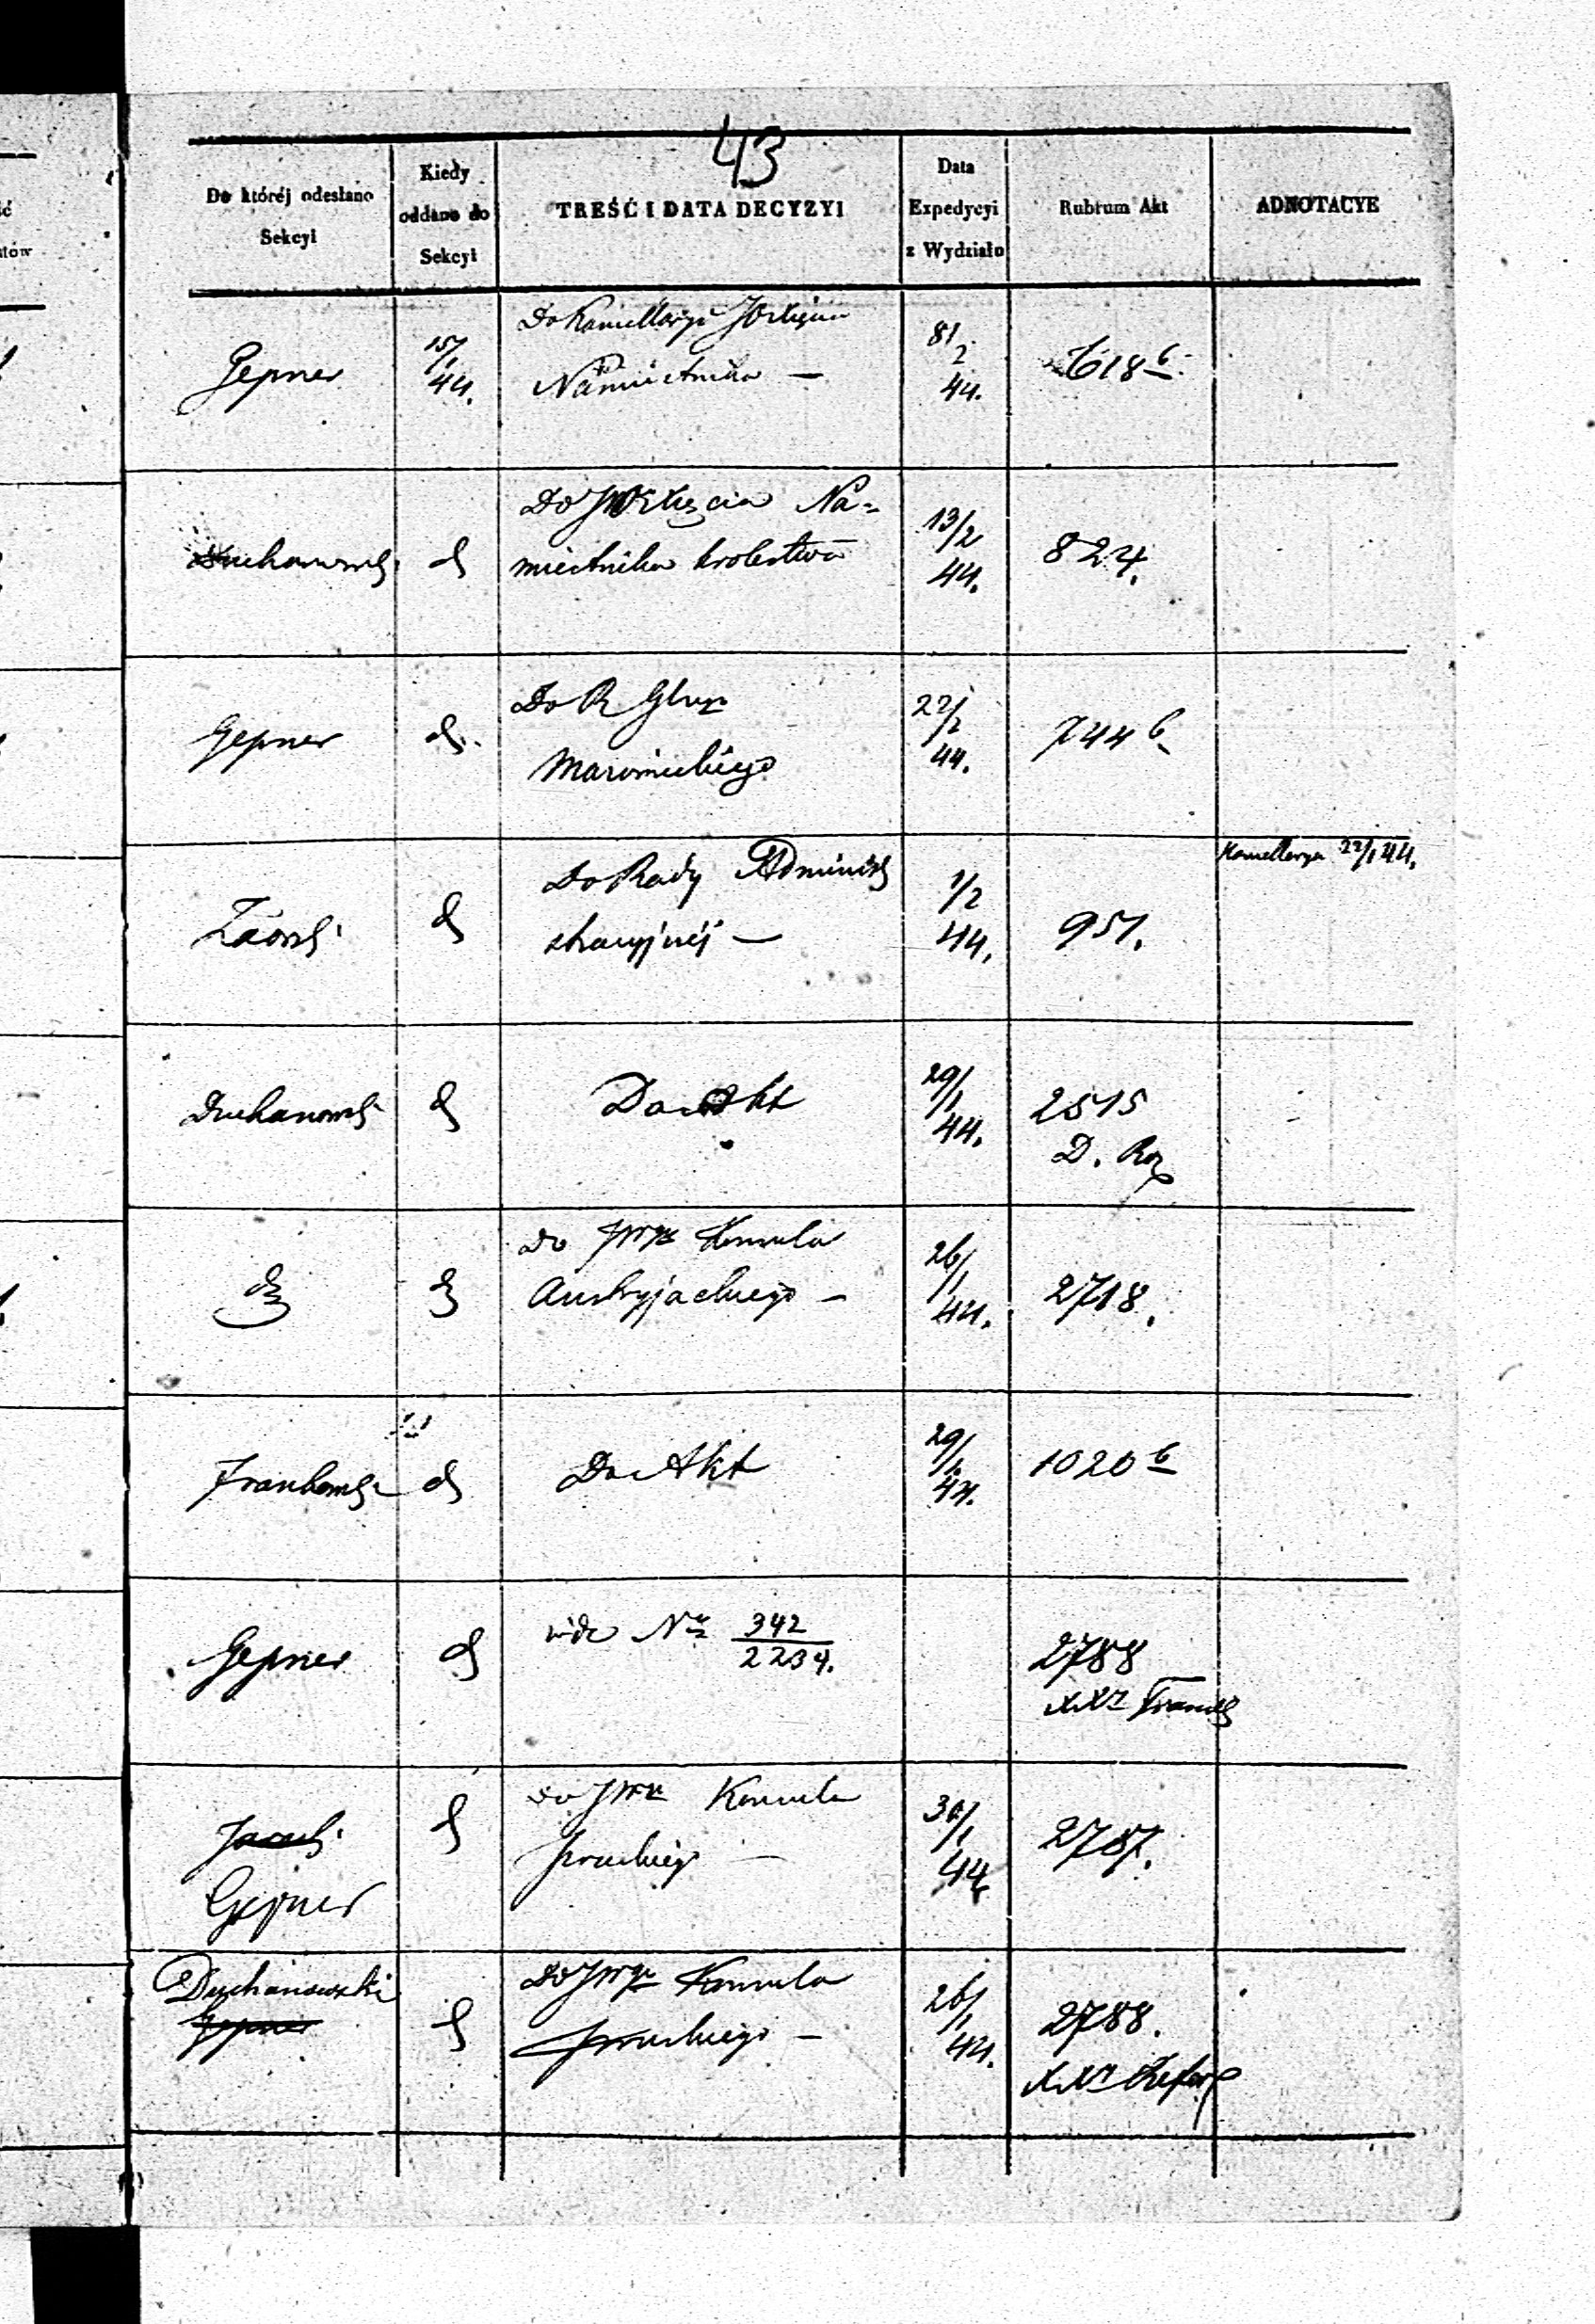 43
Do któréj odesłano Sekcyi
Kiedy oddano do Sekcyi
TREŚĆ I DATA DECYZYI
Data Expedycyi z Wydziału
Rubrum Akt
ADNOTACYE
Gepner
15/1 44.
Do Kancellaryi JO Xięcia
Namiestnika —
8/2 44.
618 b
d
Do JO Xięcia Na=
miestnika Krolestwa
13/2 44.
824.
Gepner
d.
Do R Głwgo
22/2 44.
744 b
d
Do Rady Adminis
tracyjnéj —
1/2 44.
951.
Kancellarya 22/1 44.
Duchanowski
d
Do Akt
29/1 44.
2515
D. Roz
d
d
Do JWgo Konsula
Austryjackiego —
26/1 44.
2718.
d
Do Akt
29/1 44.
1020 b
Gepner
d
vide Nr 342/2234.
2788
Gepner
d
Do JWgo Konsula
pruskiego —
30/1 44
2787.
Duchanowski
Gepner
d
Do JWgo Konsula
pruskiego —
26/1 44.
2788.